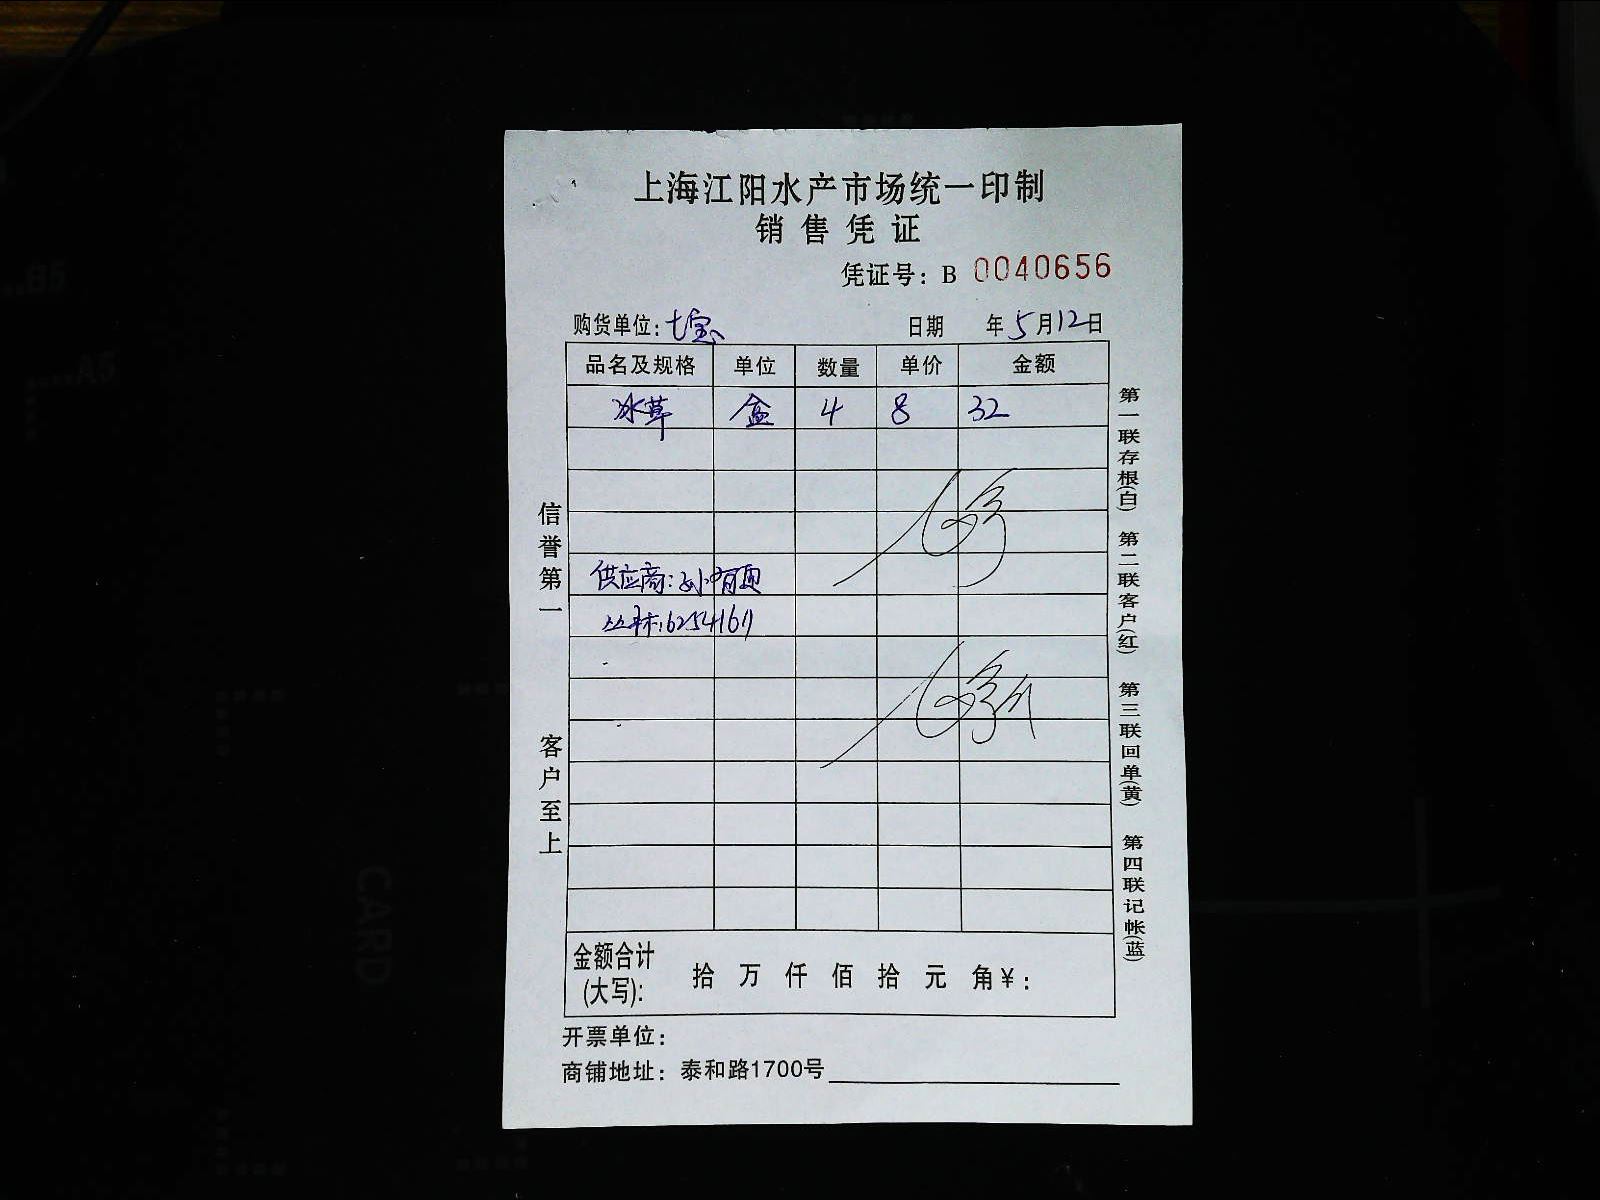 上海江阳水产市场统一印制
销售凭证
凭证号：B 0040656
购货单位：七宝 日期 年5月12日
品名及规格 单位 数量 单价 金额
冰草 盒 4 8 32
供应商：孙有
6254161
金额合计(大写)： 拾 万 仟 佰 拾 元 角 ¥：
开票单位：
商铺地址：泰和路1700号
信誉第一 客户至上
第一联存根(白) 第二联客户(红) 第三联回单(黄) 第四联记帐(蓝)
CARD
B5
A5